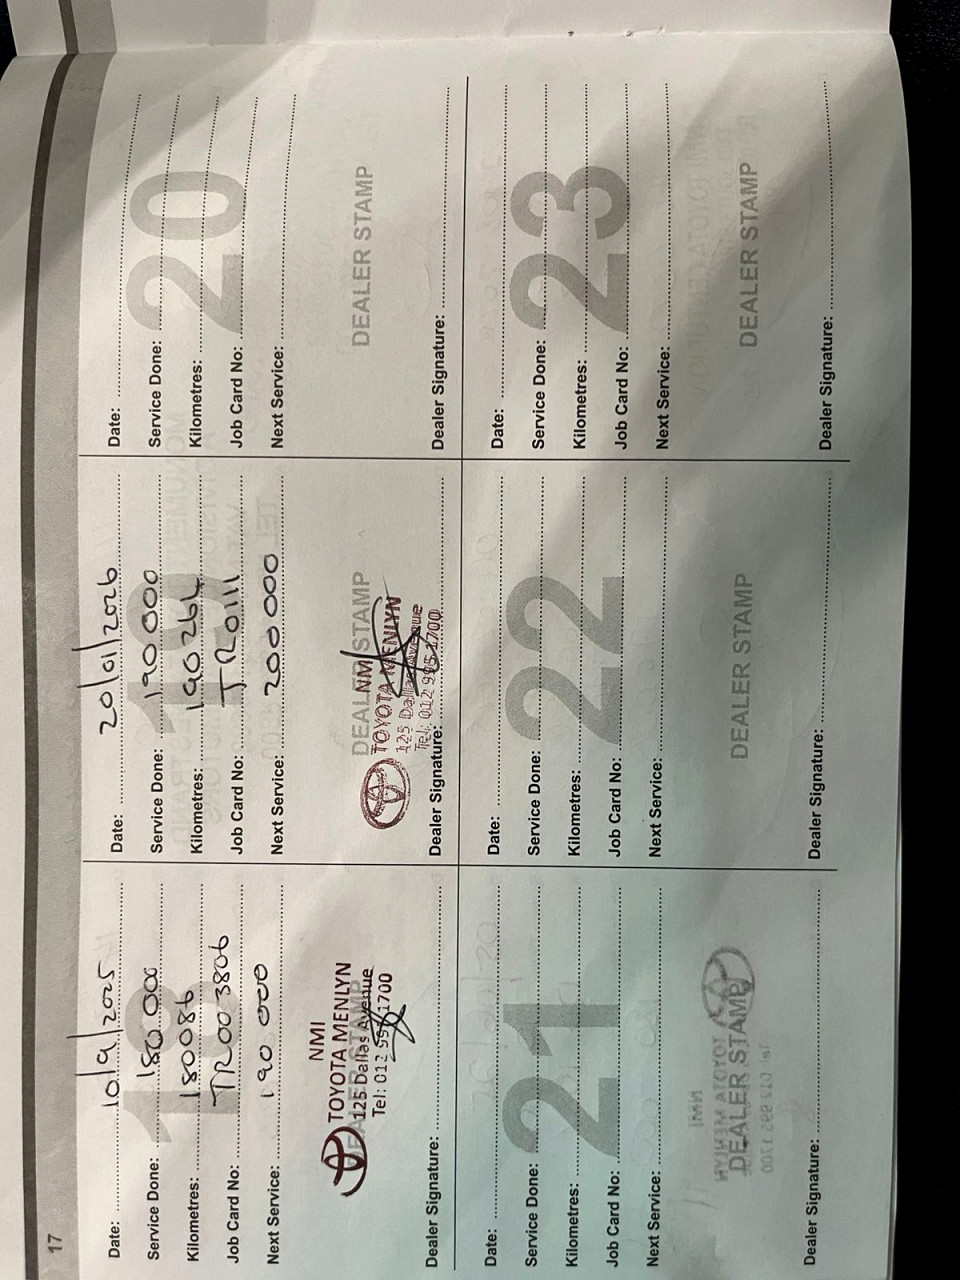 17
18
Date: 10/9/2025
Service Done: 180 000
Kilometres: 180086
Job Card No: TR003806
Next Service: 190 000
DEALER STAMP
NMI
TOYOTA MENLYN
125 Dallas Avenue
Tel: 012 995 1700
Dealer Signature:
19
Date: 20/01/2026
Service Done: 190 000
Kilometres: 190264
Job Card No:
Next Service: 200 000
DEALER STAMP
NMI
TOYOTA MENLYN
125 Dallas Avenue
Tel: 012 995 1700
Dealer Signature:
20
Date:
Service Done:
Kilometres:
Job Card No:
Next Service:
DEALER STAMP
Dealer Signature:
21
Date:
Service Done:
Kilometres:
Job Card No:
Next Service:
DEALER STAMP
Dealer Signature:
22
Date:
Service Done:
Kilometres:
Job Card No:
Next Service:
DEALER STAMP
Dealer Signature:
23
Date:
Service Done:
Kilometres:
Job Card No:
Next Service:
DEALER STAMP
Dealer Signature: